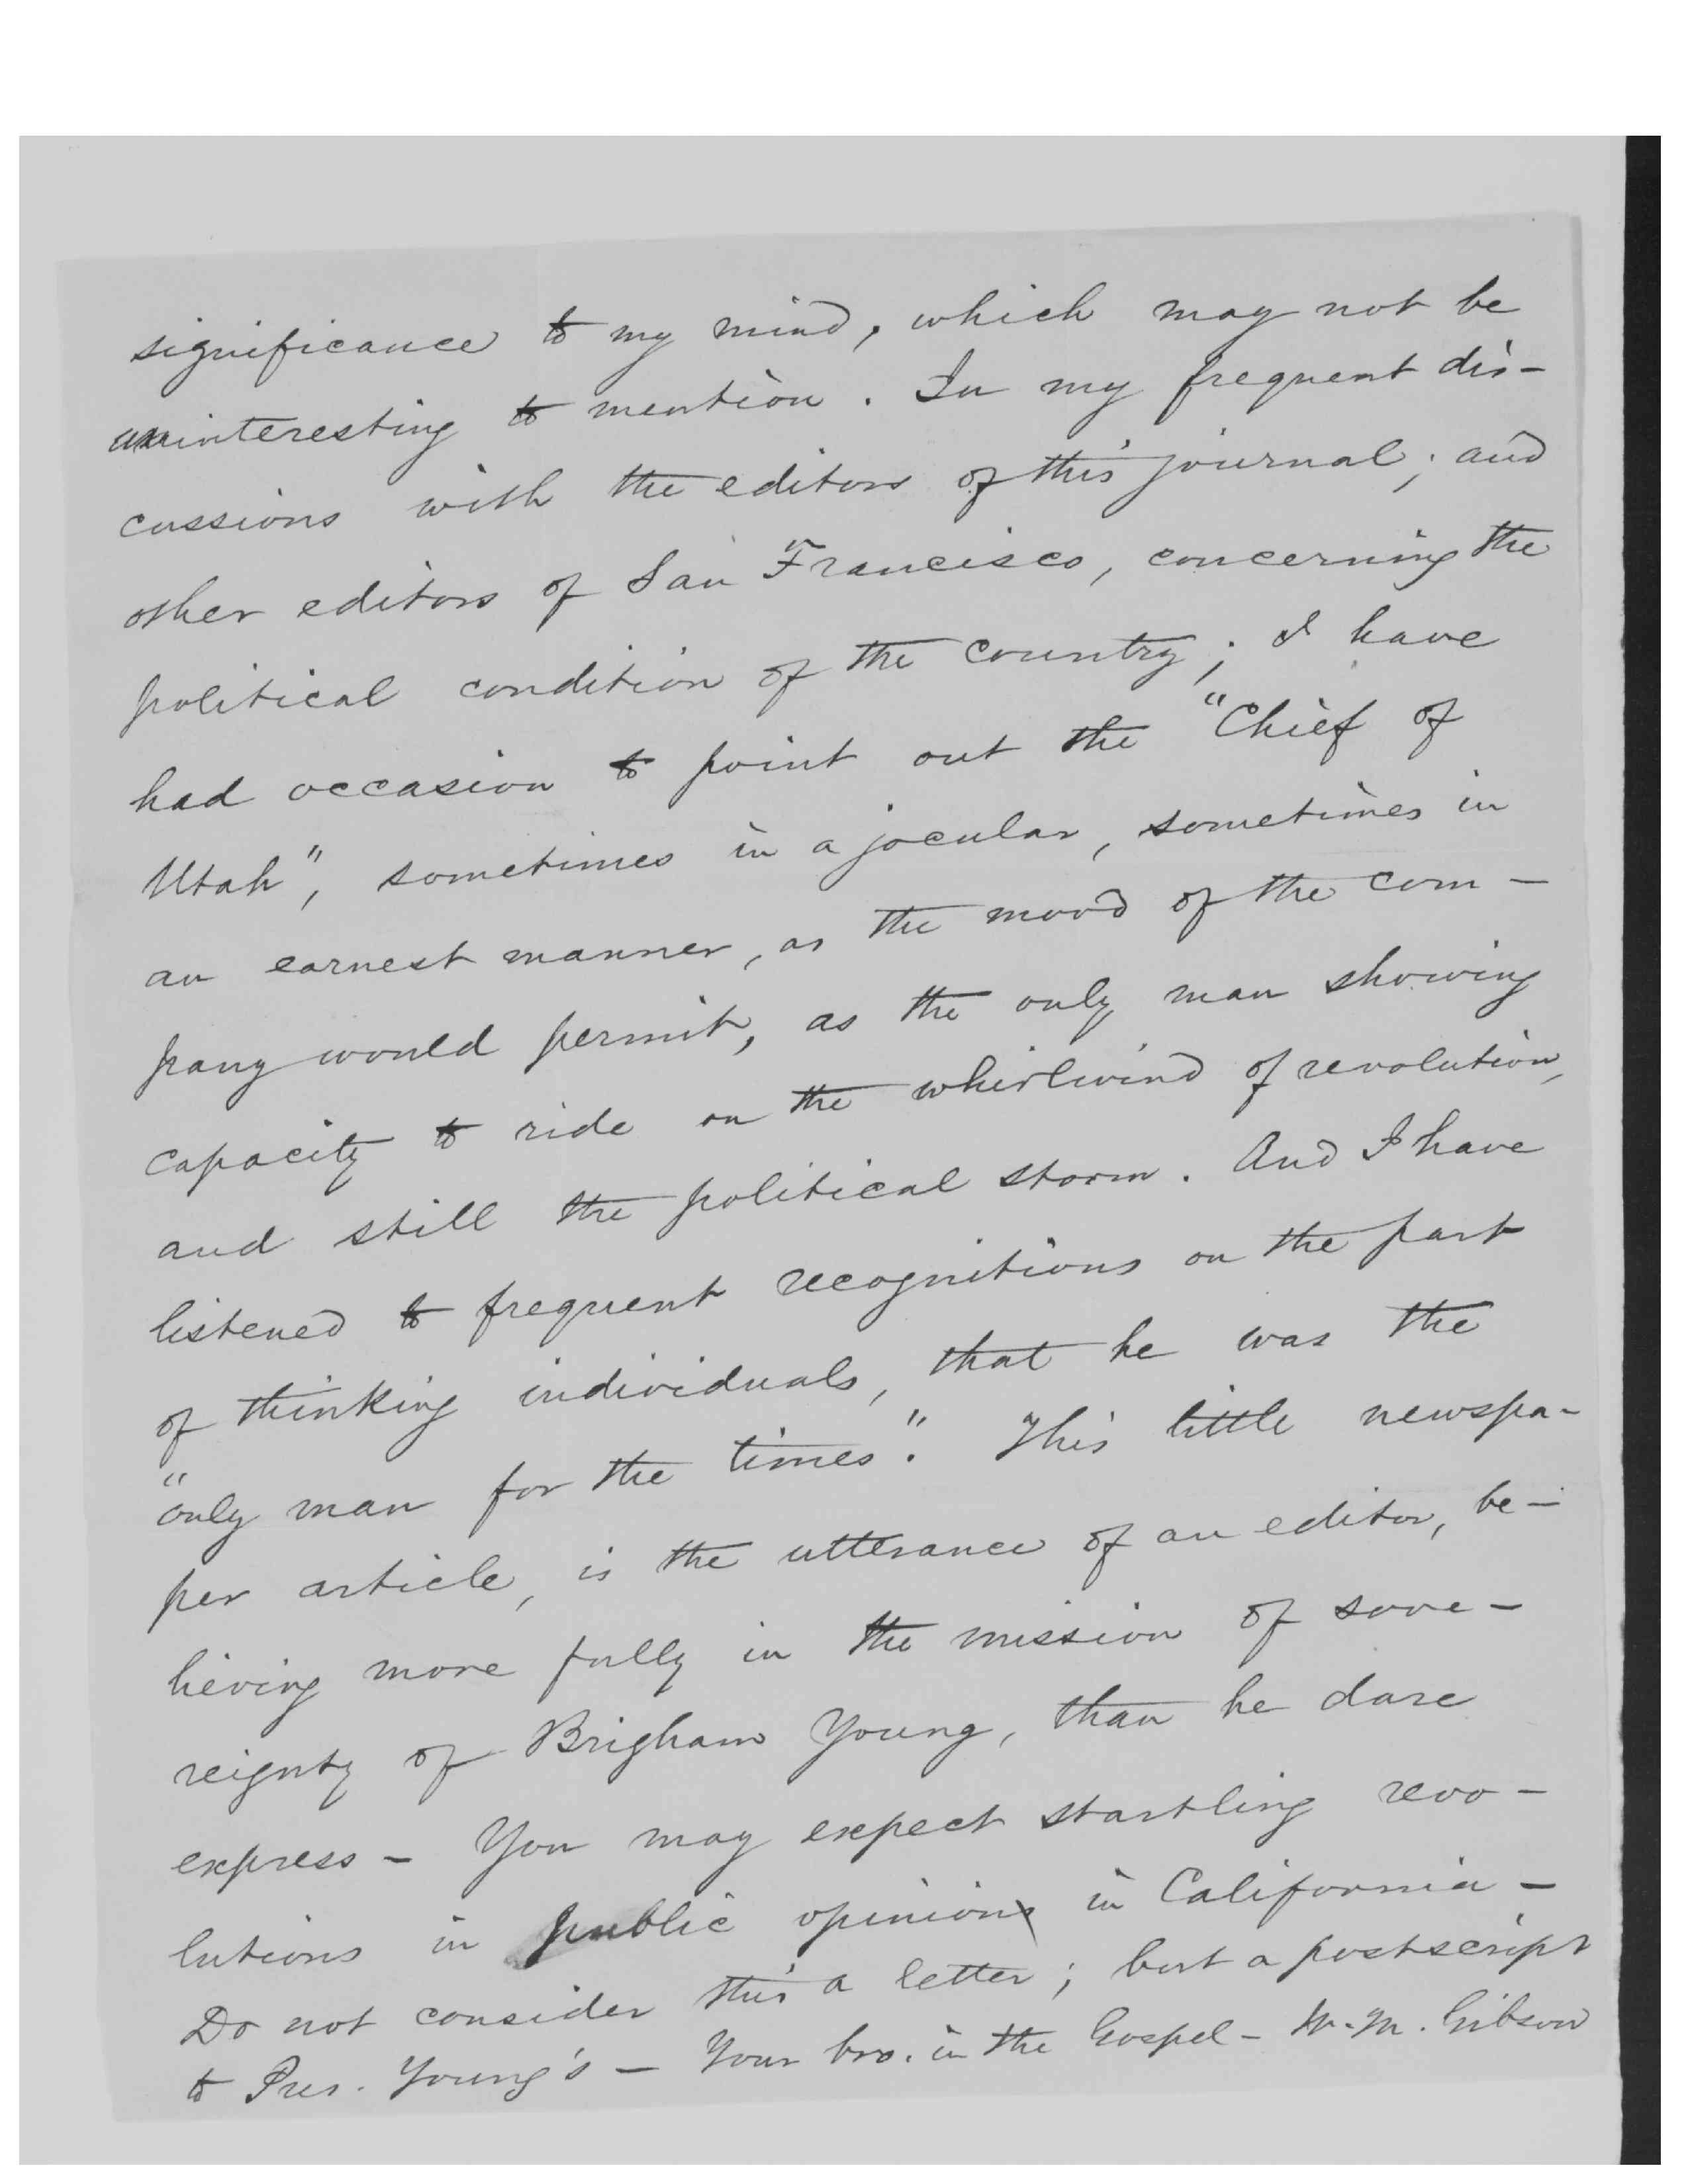 significance to my mind, which may not be
uninteresting to mention. In my frequent dis-
cussions with the editors of this journal; and
other editors of San Francisco, concerning the
political condition of the country; I have
had occasion to point out the "Chief of
Utah", sometimes in a jocular, sometimes in
an earnest manner, as the mood of the com-
pany would permit, as the only man showing
capacity to ride on the whirlwind of revolution,
and still the political storm. And I have
listened to frequent recognitions on the part
of thinking individuals, that he was the
"only man for the times". This little newspa-
per article, is the utterance of an editor, be-
lieving more fully in the mission of sove-
reignty of Brigham Young, than he dare
express - You may expect startling revo-
lutions in public opinion in California -
Do not consider this a letter; but a postscript
to Pres. Young's - Your bro. in the Gospel - W. M. Gibson